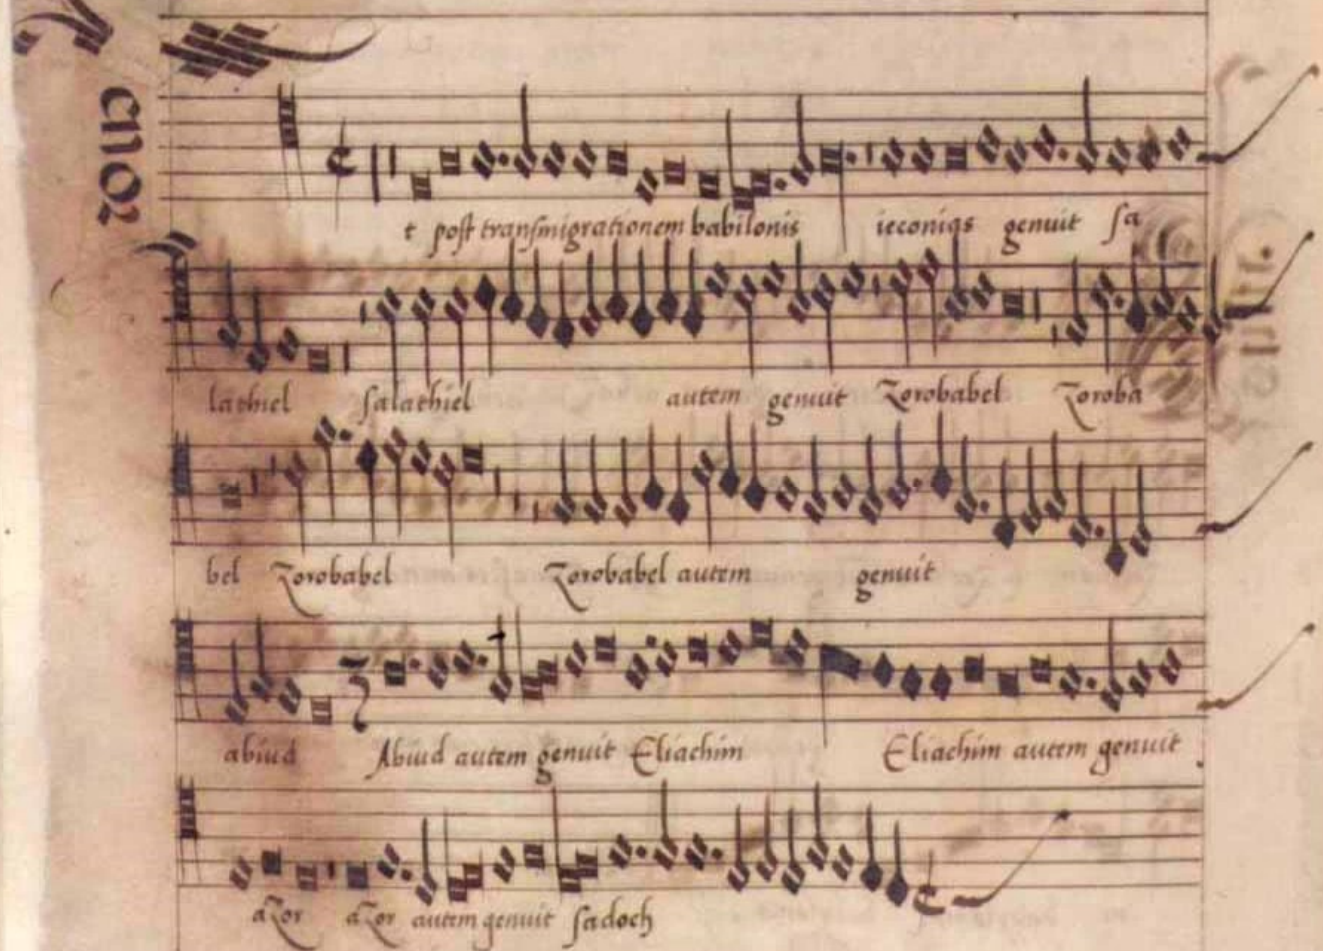 t post transmigrationem babilonis ieconias genuit sa
lathiel salathiel autem genuit Zorobabel Zoroba
bel Zorobabel Zorobabel autem genuit
abiud Abiud autem genuit Eliachim Eliachim autem genuit
aZor aZor autem genuit sadoch